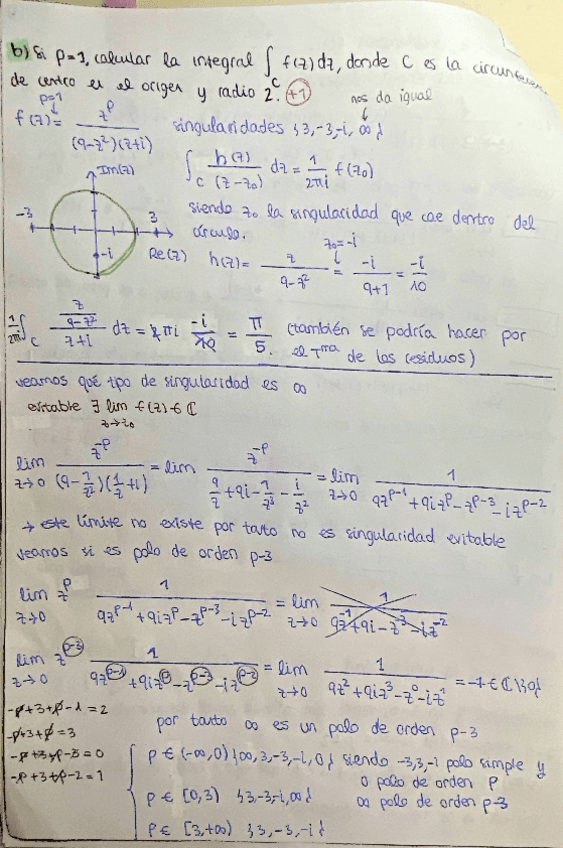 b) Si p=1, calcular la integral ∫_C f(z)dz, donde C es la circunferencia
de centro es el origen y radio 2. +1
p=1
nos da igual
f(z) = z^p / (9-z²)(z+i) singularidades {3,-3,-i, ∞}
∫_C h(z)/(z-z₀) dz = 1/2πi f(z₀)
Im(z)
-3 3
-i
Re(z)
siendo z₀ la singularidad que cae dentro del
círculo.
z₀=-i
h(z) = z/(9-z²) = -i/(9+1) = -i/10
1/2πi ∫_C (z/(9-z²))/(z+i) dz = 2πi -i/10 = π/5 (también se podría hacer por
el Tma de los residuos)
veamos qué tipo de singularidad es ∞
evitable ∃ lim f(z) ∈ ℂ
z→z₀
lim z→0 z^-p / (9-1/z²)(1/z+i) = lim z^-p / (9/z+9i-1/z³-i/z²) = lim z→0 1 / (9z^p-1+9iz^p-z^p-3-iz^p-2)
→ este límite no existe por tanto no es singularidad evitable
veamos si es polo de orden p-3
lim z→0 z^p 1 / (9z^p-1+9iz^p-z^p-3-iz^p-2) = lim z→0 1 / (9z^-1+9i-z^-3-iz^-2)
lim z→0 z^p-3 1 / (9z^p-1+9iz^p-z^p-3-iz^p-2) = lim z→0 1 / (9z²+9iz³-z⁰-iz¹) = -1 ∈ ℂ\{0}
-p+3+p-1=2
-p+3+p=3
-p+3+p-3=0
-p+3+p-2=1
por tanto ∞ es un polo de orden p-3
p ∈ (-∞,0) {∞,3,-3,-i,0} siendo -3,3,-i polo simple y
0 polo de orden p
p ∈ [0,3) {3,-3,-i,∞} ∞ polo de orden p-3
p ∈ [3,+∞) {3,-3,-i}